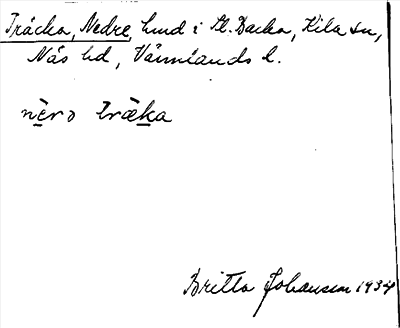 Träcka, Nedre, hmd i St. Backa, Kila sn,
Näs hd, Värmlands l.
nèrə træ̀ka
Britta Johansson 1934